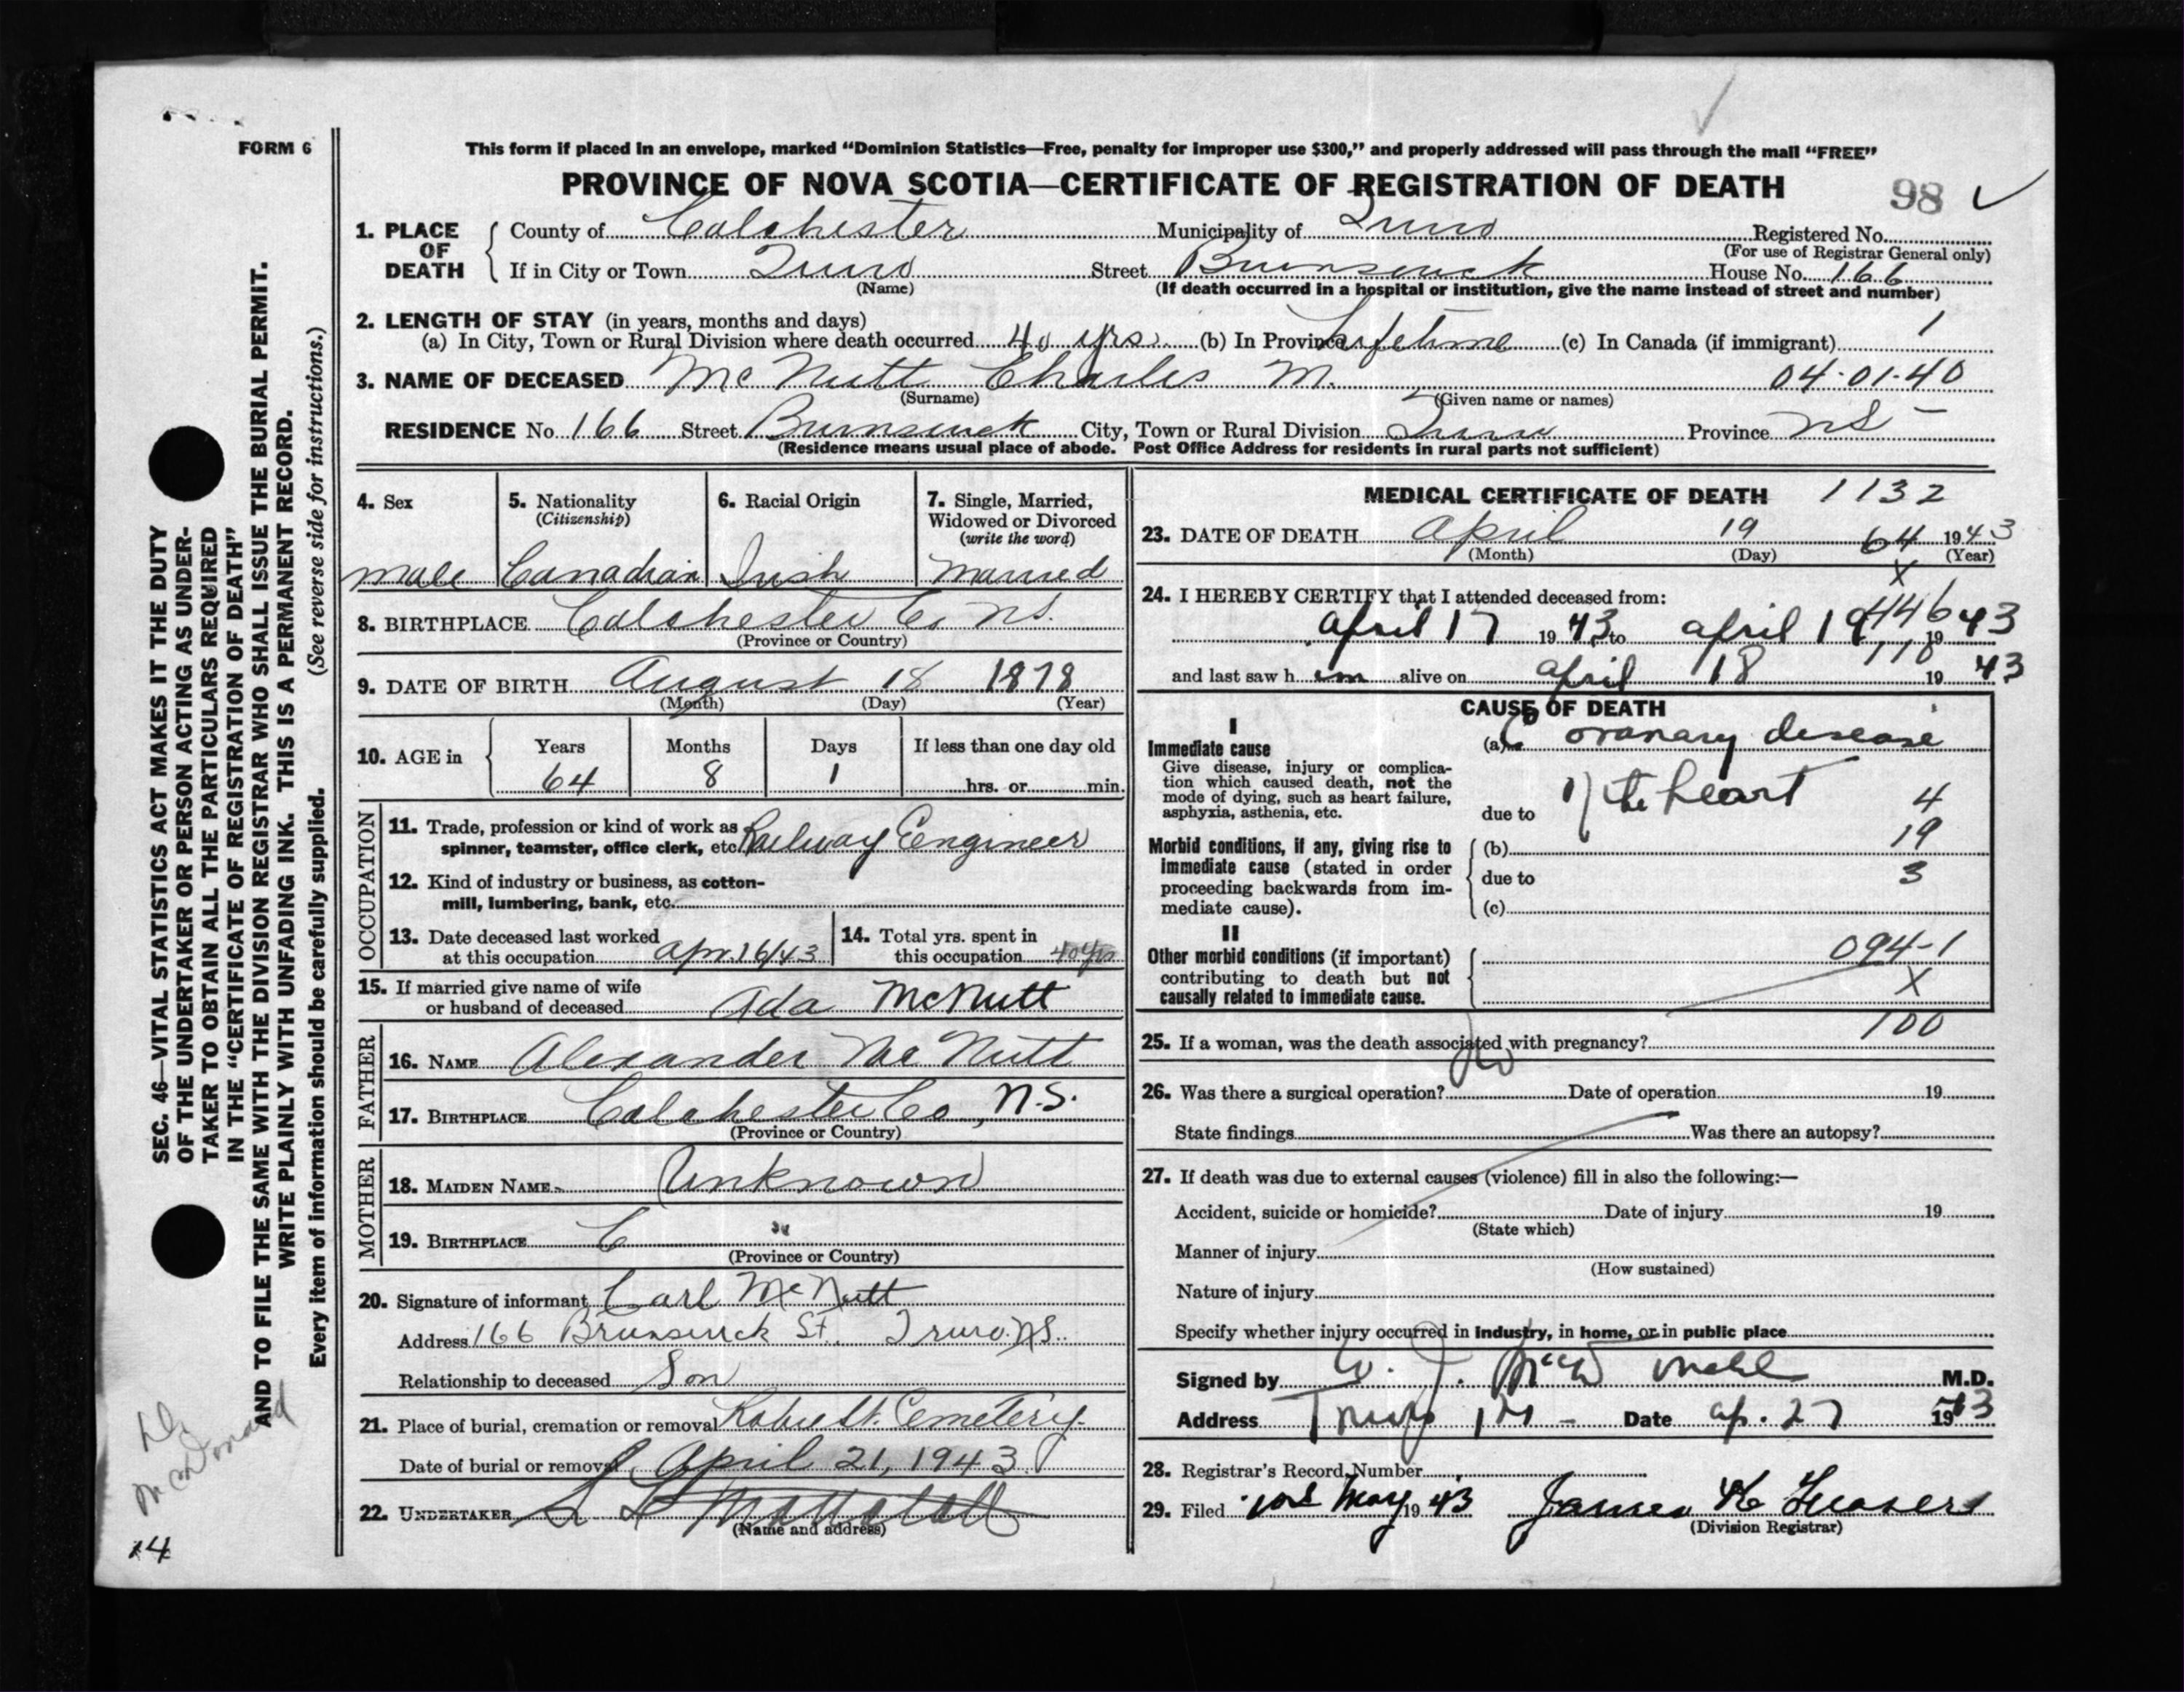 FORM 6
This form if placed in an envelope, marked “Dominion Statistics—Free, penalty for improper use $300,” and properly addressed will pass through the mail “FREE”
PROVINCE OF NOVA SCOTIA—CERTIFICATE OF REGISTRATION OF DEATH 98
1. PLACE OF DEATH County of Colchester Municipality of Truro Registered No.
(For use of Registrar General only)
If in City or Town Truro Street Brunswick House No. 166
(Name) (If death occurred in a hospital or institution, give the name instead of street and number)
2. LENGTH OF STAY (in years, months and days) 1
(a) In City, Town or Rural Division where death occurred 40 yrs. (b) In Province Lifetime (c) In Canada (if immigrant)
3. NAME OF DECEASED McNutt Charles M. 04-01-40
(Surname) (Given name or names)
RESIDENCE No. 166 Street Brunswick City, Town or Rural Division Truro Province NS –
(Residence means usual place of abode. Post Office Address for residents in rural parts not sufficient)
4. Sex male
5. Nationality (Citizenship) Canadian
6. Racial Origin Irish
7. Single, Married, Widowed or Divorced (write the word) Married
8. BIRTHPLACE Colchester Co NS.
(Province or Country)
9. DATE OF BIRTH August 18 1878
(Month) (Day) (Year)
10. AGE in Years Months Days If less than one day old
64 8 1 hrs. or min.
OCCUPATION
11. Trade, profession or kind of work as spinner, teamster, office clerk, etc. Railway Engineer
12. Kind of industry or business, as cotton-mill, lumbering, bank, etc.
13. Date deceased last worked at this occupation Apr. 16/43
14. Total yrs. spent in this occupation 40 yrs
15. If married give name of wife or husband of deceased Ada McNutt
FATHER
16. NAME Alexander McNutt
17. BIRTHPLACE Colchester Co, N.S.
(Province or Country)
MOTHER
18. MAIDEN NAME Unknown
19. BIRTHPLACE C "
(Province or Country)
20. Signature of informant Carl McNutt
Address 166 Brunswick St. Truro. NS.
Relationship to deceased Son
21. Place of burial, cremation or removal Robie St. Cemetery.
Date of burial or removal April 21, 1943
22. UNDERTAKER
(Name and address)
MEDICAL CERTIFICATE OF DEATH 1132
23. DATE OF DEATH April 19 64 1943
(Month) (Day) (Year)
X
24. I HEREBY CERTIFY that I attended deceased from: 446
April 17 1943 to April 19 1943
and last saw him alive on April 18 1943
CAUSE OF DEATH
I
Immediate cause (a) Coronary disease
Give disease, injury or complication which caused death, not the mode of dying, such as heart failure, asphyxia, asthenia, etc.
due to of the heart 4
19
Morbid conditions, if any, giving rise to immediate cause (stated in order proceeding backwards from immediate cause).
(b)
due to 3
(c)
II
Other morbid conditions (if important) contributing to death but not causally related to immediate cause.
094-1
X
100
25. If a woman, was the death associated with pregnancy?
26. Was there a surgical operation? No Date of operation 19
State findings Was there an autopsy?
27. If death was due to external causes (violence) fill in also the following:—
Accident, suicide or homicide? Date of injury 19
(State which)
Manner of injury
(How sustained)
Nature of injury
Specify whether injury occurred in industry, in home, or in public place
Signed by M.D.
Address Truro Date Ap. 27 1943
28. Registrar's Record Number
29. Filed May 1943 James
(Division Registrar)
SEC. 46—VITAL STATISTICS ACT MAKES IT THE DUTY
OF THE UNDERTAKER OR PERSON ACTING AS UNDER-
TAKER TO OBTAIN ALL THE PARTICULARS REQUIRED
IN THE “CERTIFICATE OF REGISTRATION OF DEATH”
AND TO FILE THE SAME WITH THE DIVISION REGISTRAR WHO SHALL ISSUE THE BURIAL PERMIT.
WRITE PLAINLY WITH UNFADING INK. THIS IS A PERMANENT RECORD.
Every item of information should be carefully supplied. (See reverse side for instructions.)
Dr
McDonald
14